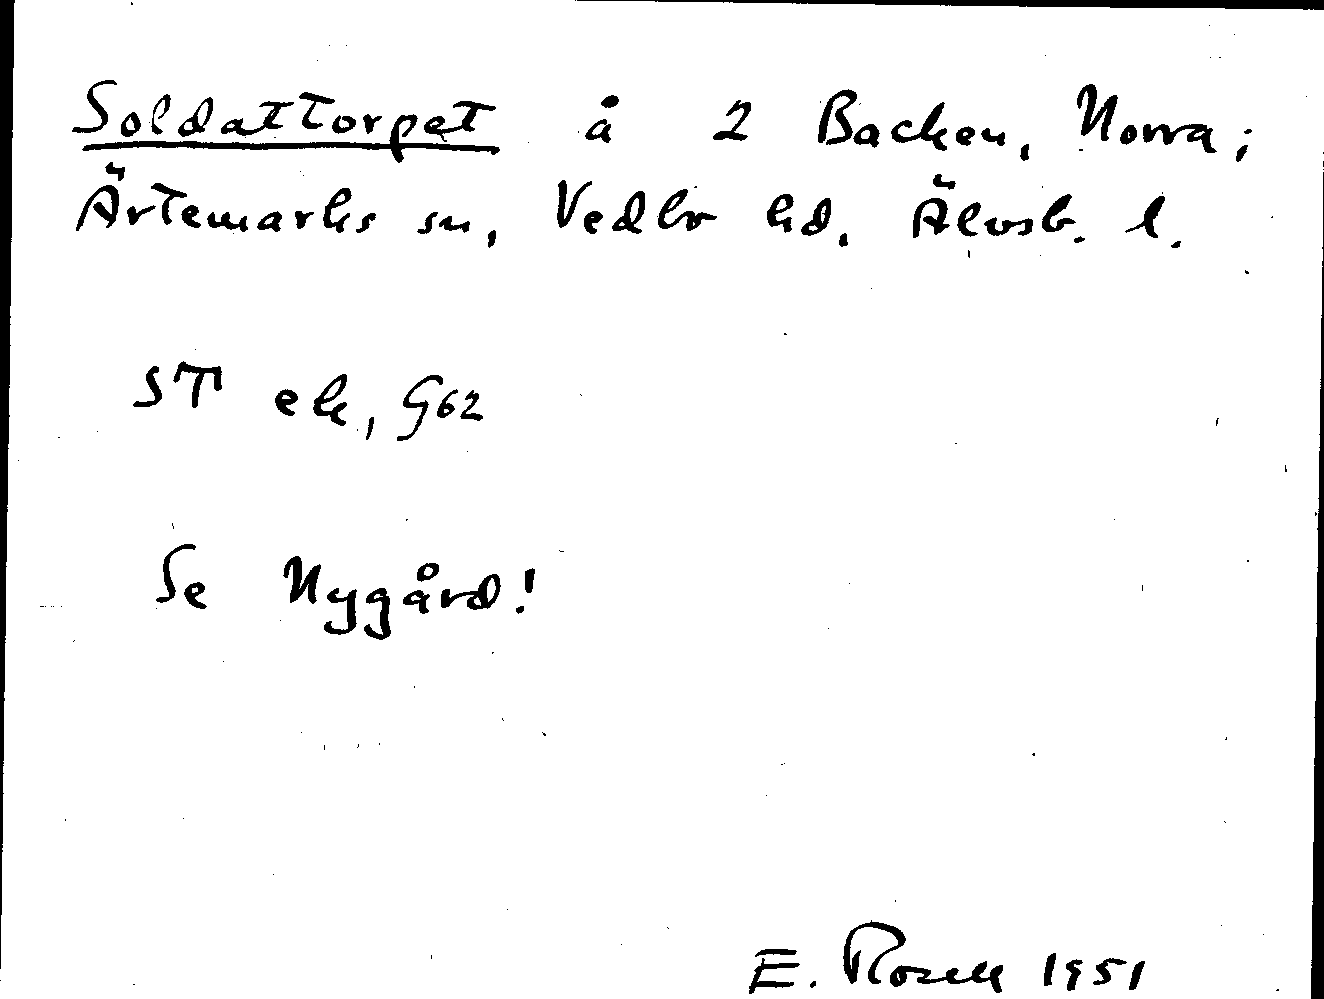 Soldattorpet å 2 Backen, Norra;
Ärtemarks sn, Vedbo hd, Älvsb. l.
ST ek, G62
Se Nygård!
E. Rosell 1951